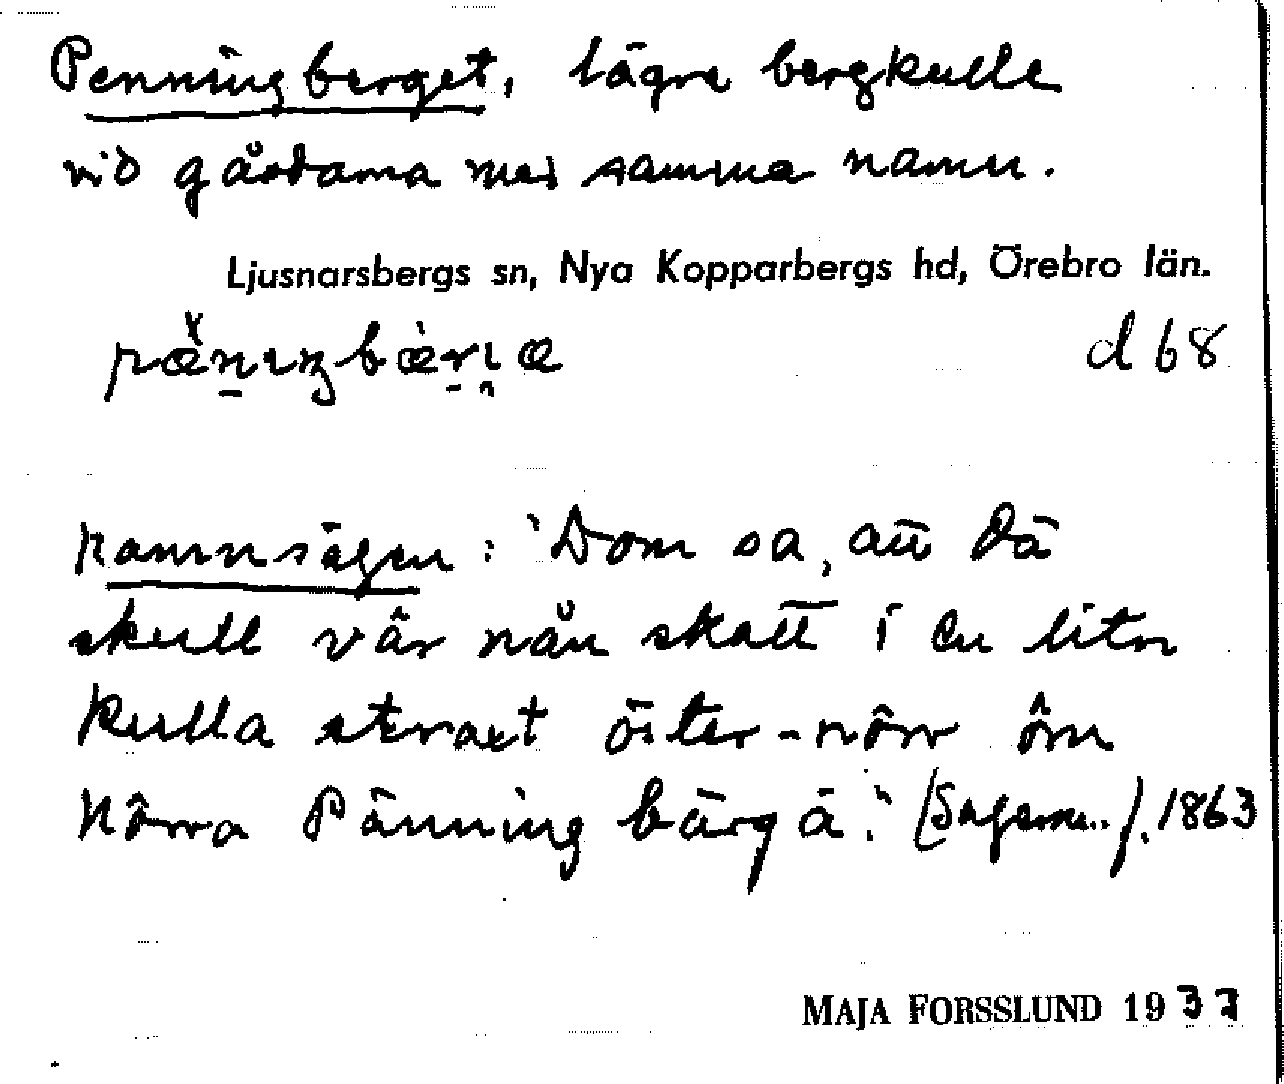 Penningberget, lägre bergkulle
vid gårdarna med samma namn.
Ljusnarsbergs sn, Nya Kopparbergs hd, Örebro län.
d 68
Namnsägen: "Dom sa, att dä
skull vâr nån skatt i en liten
kulla strraxt öster-nôrr ôm
Nôrra Pänningbärgä." (Sagesm..). 1863
MAJA FORSSLUND 1937